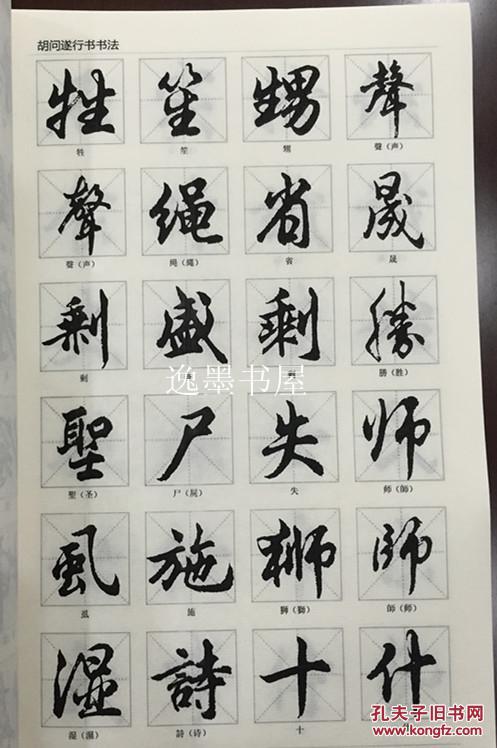 胡问遂行书书法
牲 笙 甥 聲
牲 笙 甥 聲（声）
聲 绳 省 晟
聲（声） 绳（繩） 省 晟
剩 盛 剩 勝
剩 剩 勝（胜）
逸墨书屋
聖 尸 失 师
聖（圣） 尸（屍） 失 师（師）
虱 施 狮 師
虱 施 狮（獅） 師（师）
湿 詩 十 什
湿（濕） 詩（诗） 十
孔夫子旧书网
www.kongfz.com